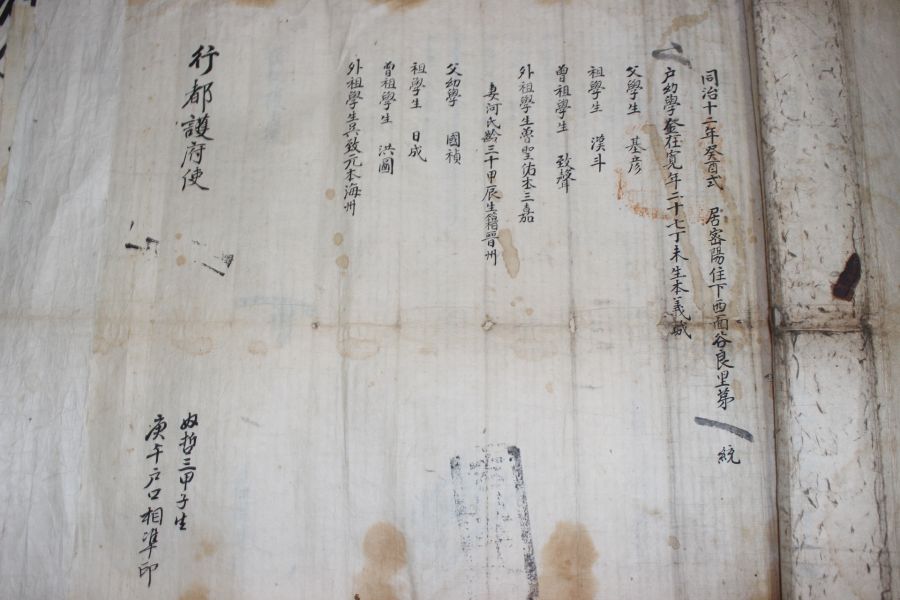 同治十二年癸酉式 居密陽住下西面谷良里第一統
六
户幼學金在寬年二十七丁未生本義城
父學生 基彦
祖學生 漢斗
曾祖學生 致聲
外祖學生曺聖佑本三嘉
妻河氏齡三十甲辰生籍晋州
父幼學 國禎
祖學生 日成
曾祖學生 洪圖
外祖學生吳致元本海州
行都護府使
奴哲三甲子生
庚午户口相凖印